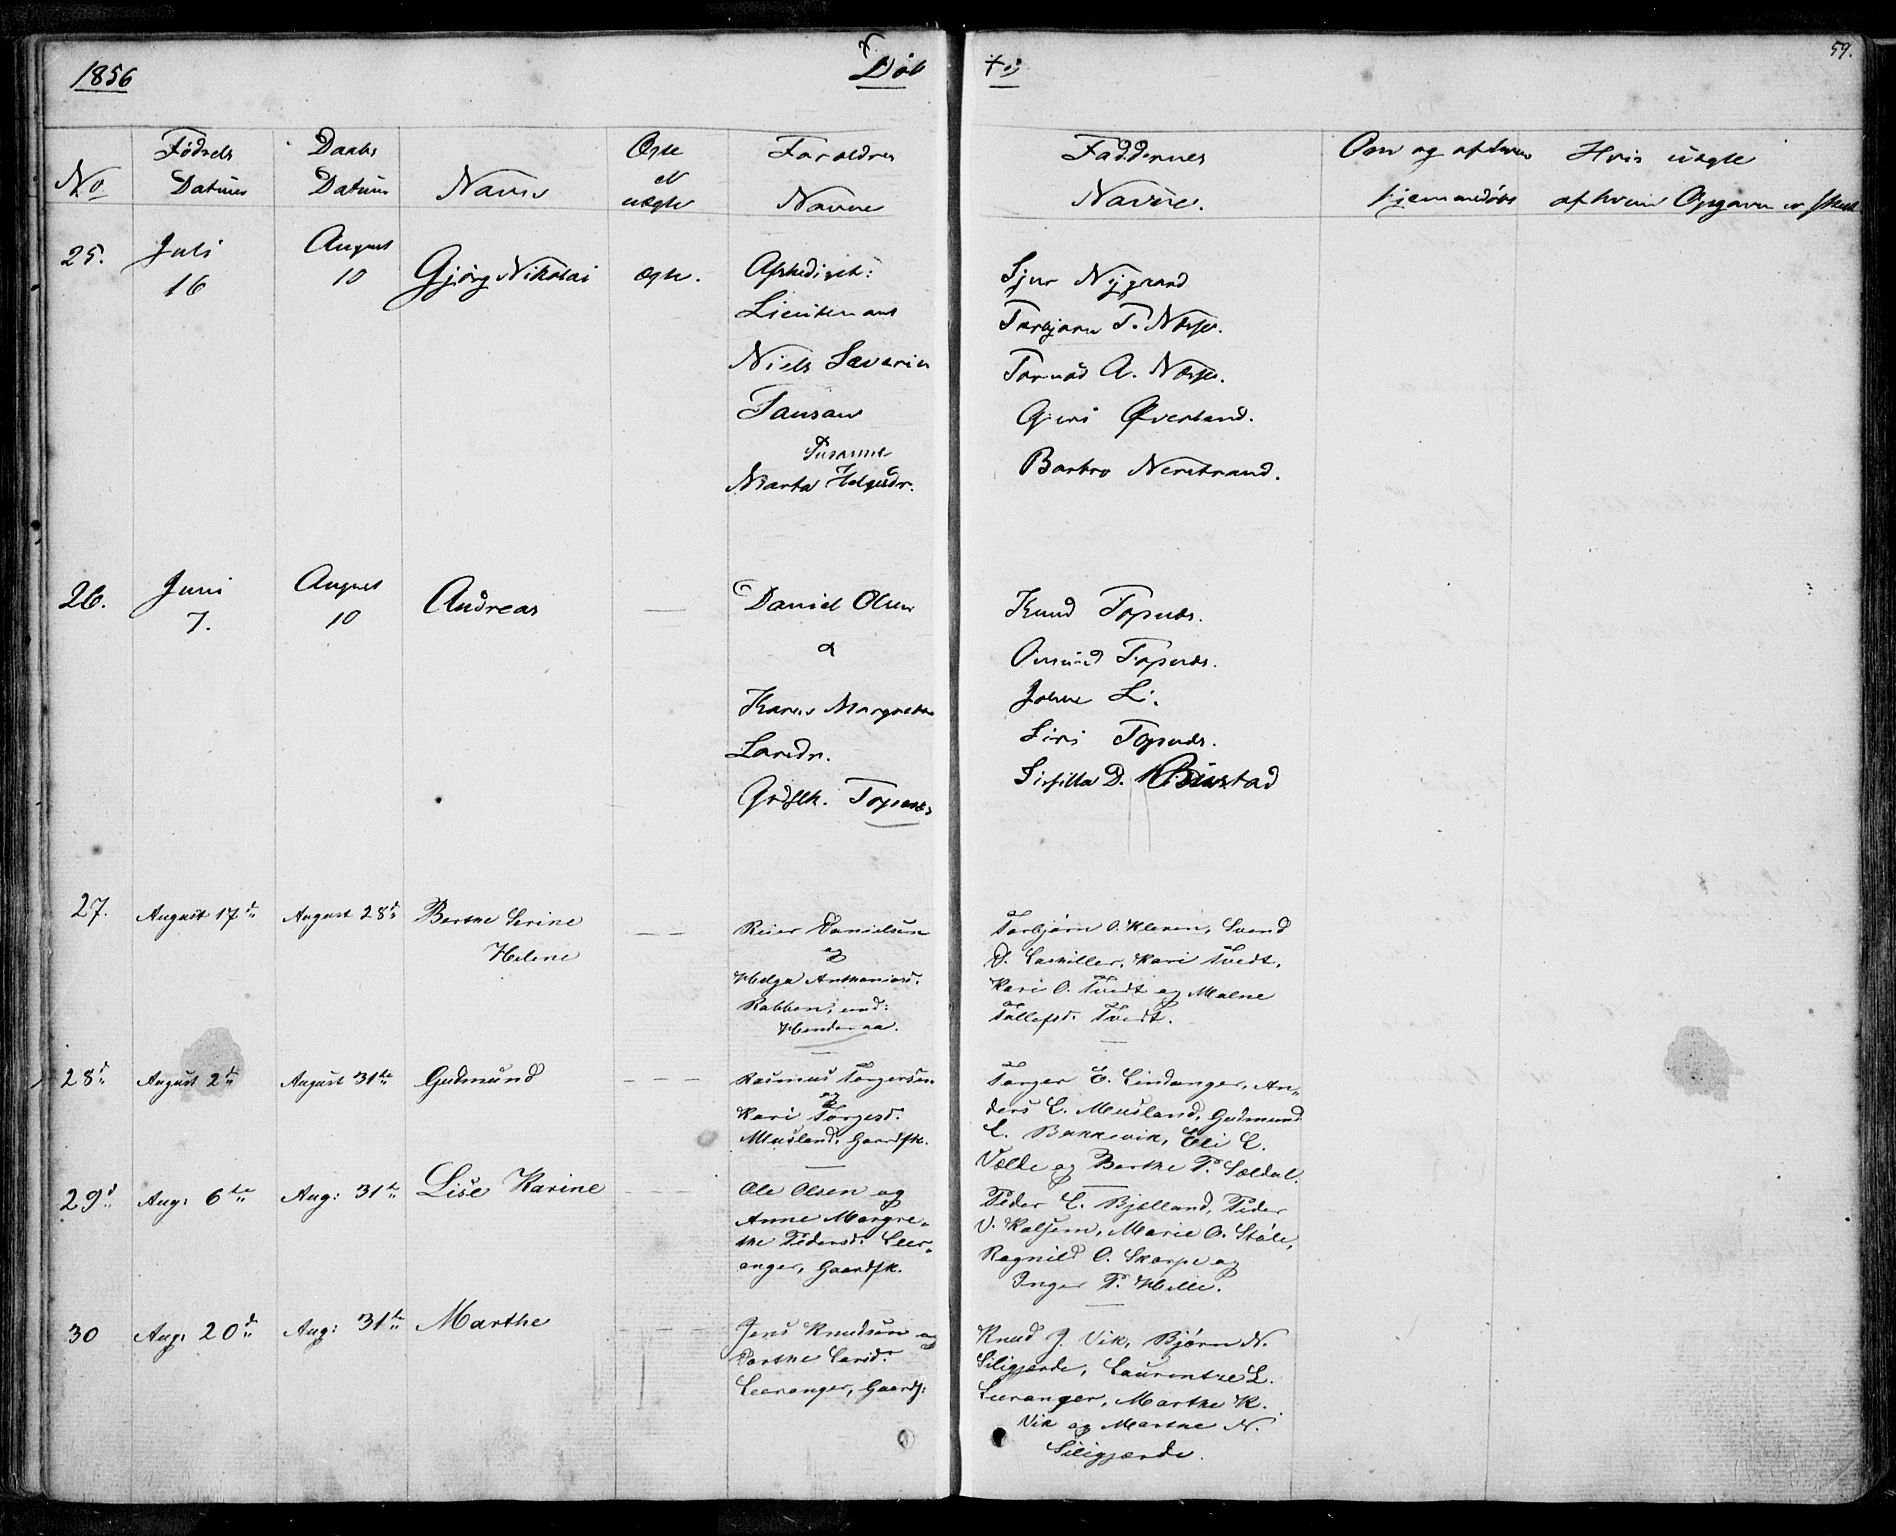 1856
Døb
te
59.
No
Fødsels
Datum
Daabs
Datum
Navn
Ægte
el
uægte
Forældres
Navne
Faddernes
Navne.
Om og af hvem
hjemmedøbt
Hvis uægte
af hvem Opgaven er skeet
25.
Juli
16
August
10
Gjørg Nikolai
ægte.
Afskediget:
Lieutenant
Niels Severin
Susanne
Marta Helgesdr.
Sjur Nygaard
Torbjørn T. Næsse.
A. Næsse.
Guri Øverland.
Barbro Nerstrand.
26.
Juni
7.
August
10
Andreas
Daniel Olsen
&
Karen Margrethe
Larsdr.
Grdflk. Topnes
Knud Topnes.
Topnes.
Johne Li.
Siri Topnes.
D.
27.
August 17de
August 28de
Berthe Serine
Helene
Reier Danielsen
og
Helga Anthoniasd.
Rabben, und:
Hendenaa.
Torbjørn O. Kleven, Svend
Kari Tvedt,
Kari O. Tvedt og Malene
Tollefsd. Tvedt.
28de
August 2de
August 31te
Gudmund
Rasmus Torgersen
og
Kari Torgesd.
Musland, Gaardfk.
Torger E. Lindanger, An-
ders L. Musland, Gudmund
E. Bakkevik, Eli L.
Valde og Berthe T. Sældal.
29de
Aug: 6te
Aug: 31te
Lise Karine
Ole Olsen og
Anne Margre-
the Pedersd: Leer-
anger, Gaardfk.
Peder E. Bjelland, Peder
V. Kalsem, Marie O. Støle,
Ragnild O. Skarpe og
Inger T. Hille.
30
Aug: 20de
Aug: 31te
Marthe
Jens Knudsen og
Dorthe Larsd:
Leeranger, Gaardf:
Knud J. Vik, Bjørn N.
Siligjerde, Laurentze L.
Leeranger, Marthe K.
Vik og Marthe N.
Siligjærde.